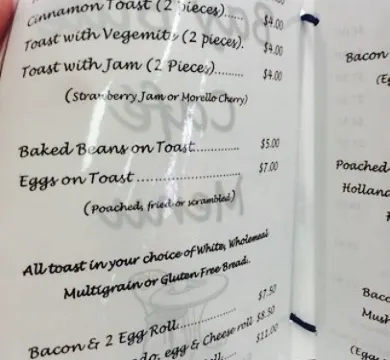 Cinnamon Toast (2 pieces)...... $4.00
Toast with Vegemite (2 pieces). $4.00
Toast with Jam (2 Pieces)......... $4.00
(Strawberry Jam or Morello Cherry)
Baked Beans on Toast.............. $5.00
Eggs on Toast ...................... $7.00
(Poached, fried or scrambled)
All toast in your choice of White, Wholemeal
Multigrain or Gluten Free Bread.
Bacon & 2 Egg Roll................ $7.50
egg & Cheese roll $8.50
$11.00
Bacon
Poached
Holland
Bacc
Mush
(Eggs